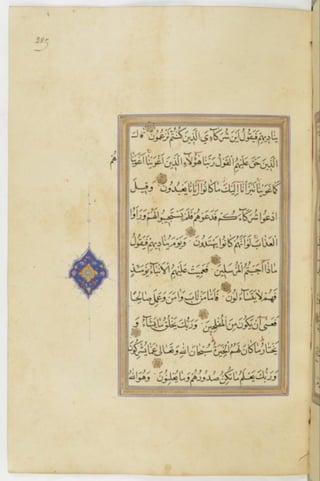 يناديهم فيقول اين شركاءي الذين كنتم تزعمون قال
الذين حق عليهم القول ربنا هؤلاء الذين اغوينا اغوينا
هم
كما غوينا تبرانا اليك ما كانوا ايانا يعبدون وقيل
ادعوا شركاءكم فدعوهم فلم يستجيبوا لهم وراوا
العذاب لو انهم كانوا يهتدون ويوم يناديهم فيقول
ماذا اجبتم المرسلين فعميت عليهم الانباء يومئذ
فهم لا يتساءلون فاما من تاب وامن وعمل صالحا
فعسى ان يكون من المفلحين وربك يخلق ما يشاء و
يختار ما كان لهم الخيرة سبحان الله وتعالى عما يشركون
وربك يعلم ما تكن صدورهم وما يعلنون وهو الله